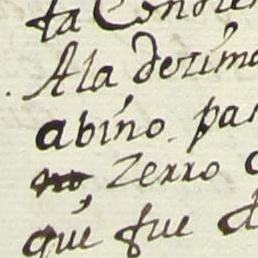 ta Condic
A la dezima
abino. pa
zerro
que fue d